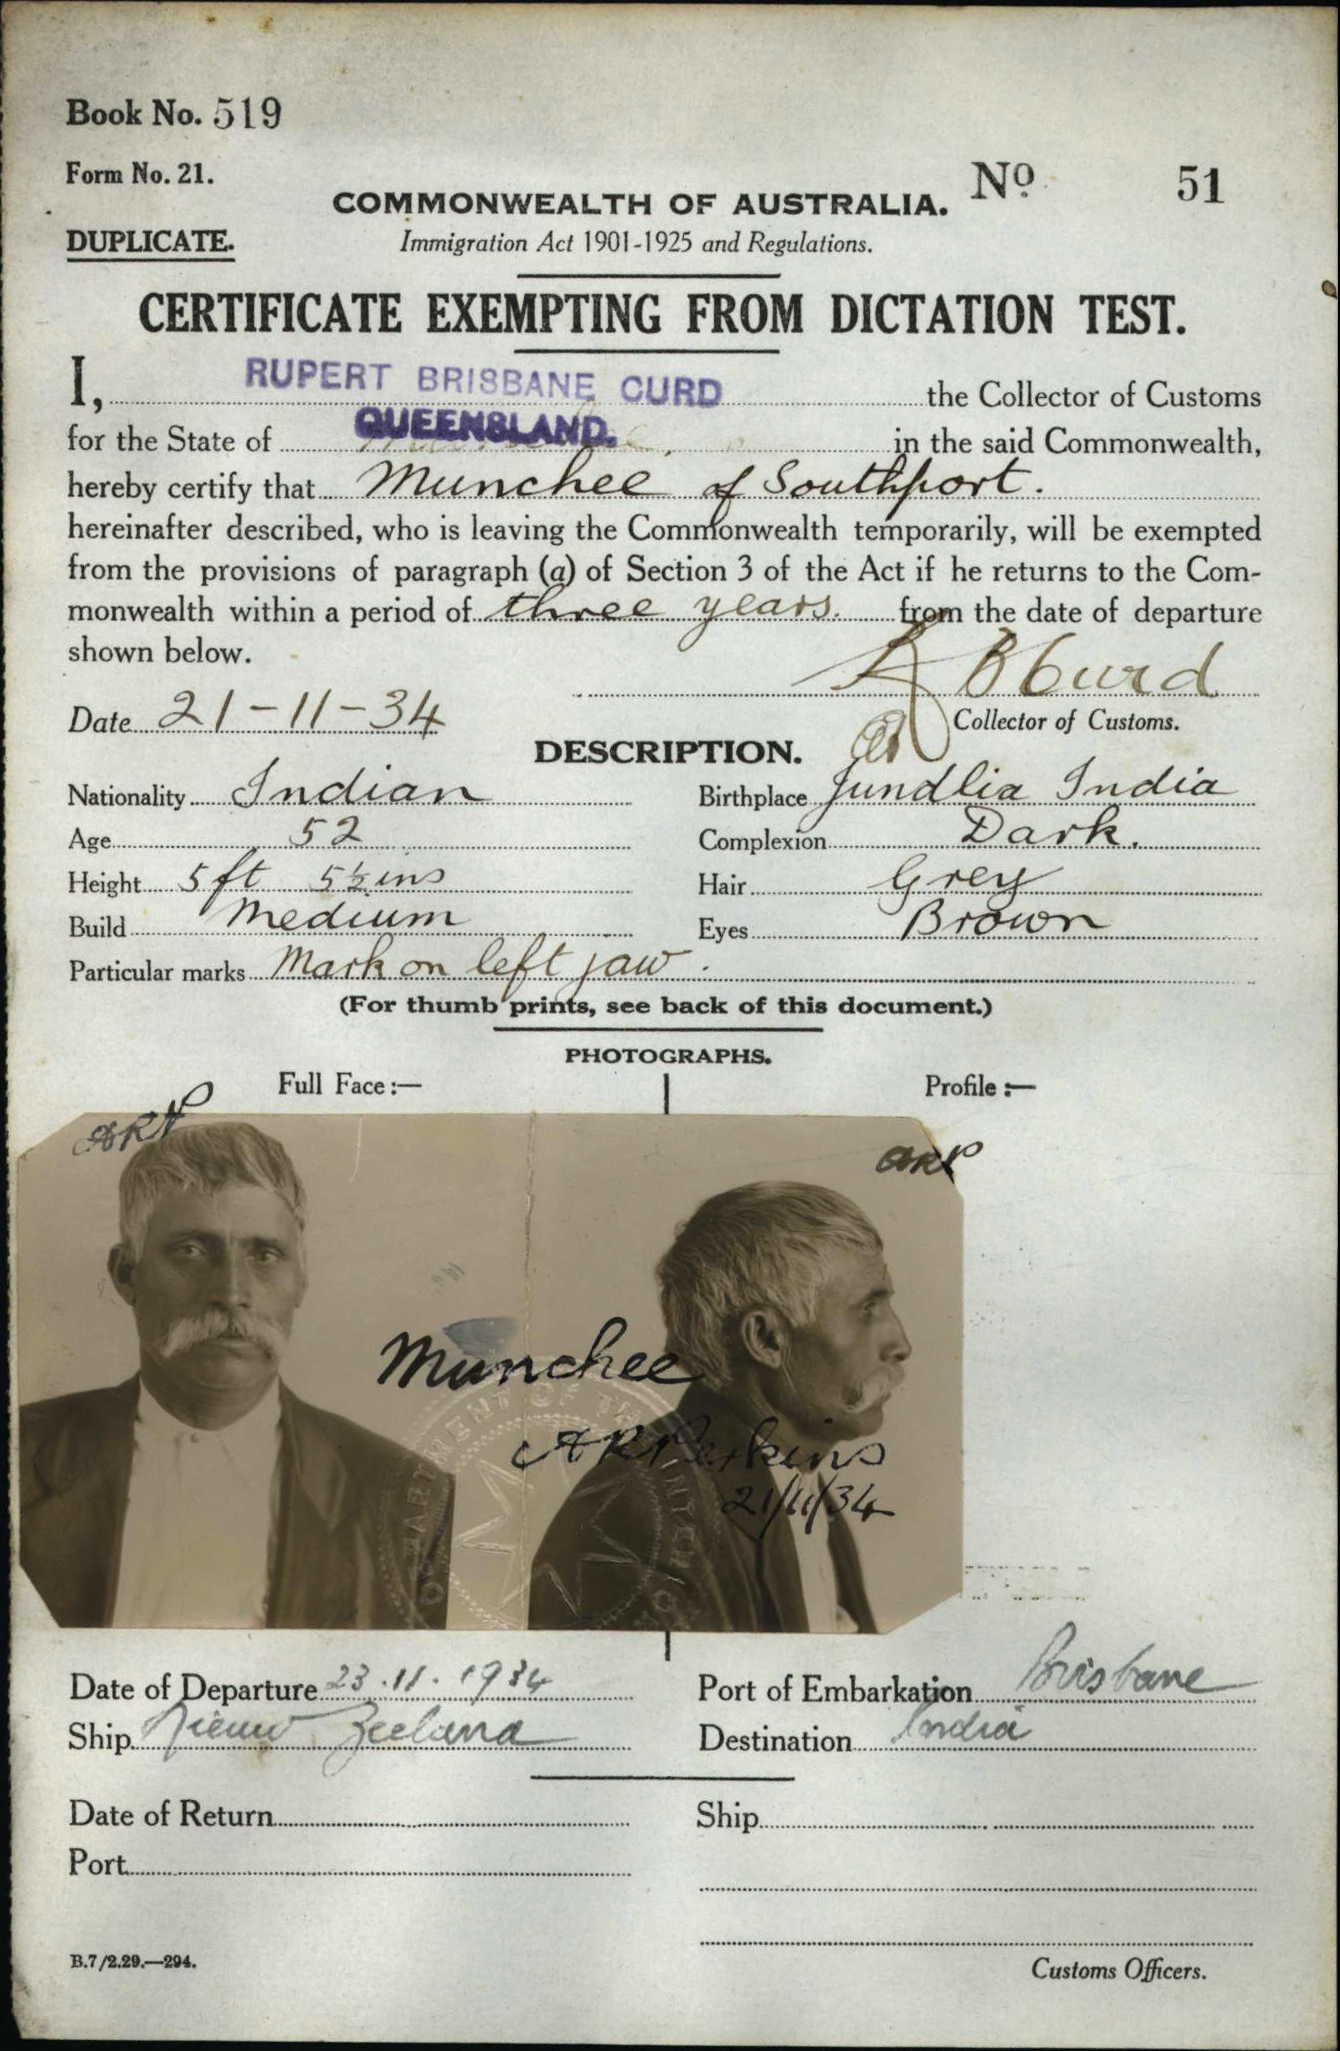 Book No. 519
Form No. 21.
No 51
COMMONWEALTH OF AUSTRALIA.
DUPLICATE.
Immigration Act 1901-1925 and Regulations.
CERTIFICATE EXEMPTING FROM DICTATION TEST.
I, RUPERT BRISBANE CURD the Collector of Customs
for the State of QUEENSLAND. in the said Commonwealth,
hereby certify that Munchee of Southport.
hereinafter described, who is leaving the Commonwealth temporarily, will be exempted
from the provisions of paragraph (a) of Section 3 of the Act if he returns to the Com-
monwealth within a period of three years. from the date of departure
shown below.
R B Curd
Date 21-11-34
Collector of Customs.
DESCRIPTION.
Nationality Indian
Birthplace Jundlia India
Age 52
Complexion Dark.
Height 5 ft 5½ ins
Hair Grey
Build Medium
Eyes Brown
Particular marks Mark on left jaw.
(For thumb prints, see back of this document.)
PHOTOGRAPHS.
Full Face:—
Profile:—
ARP
ARP
Munchee
ARPerkins
21/11/34
Date of Departure 23.11.1934
Port of Embarkation Brisbane
Ship Nieuw Zeeland
Destination India
Date of Return
Ship
Port
B.7/2.29.—294.
Customs Officers.